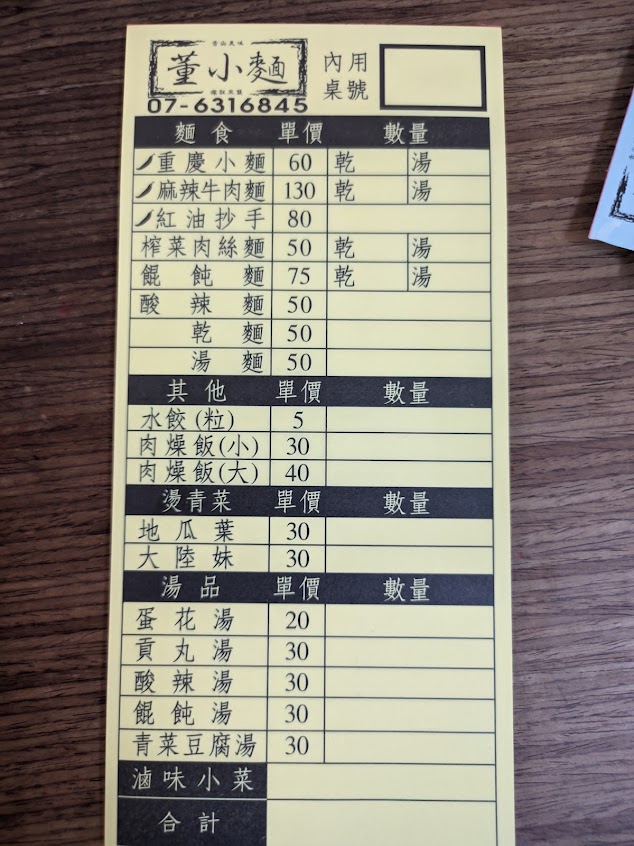 董小麵
07-6316845
內用
桌號
麵食 單價 數量
重慶小麵 60 乾 湯
麻辣牛肉麵 130 乾 湯
紅油抄手 80
榨菜肉絲麵 50 乾 湯
餛飩麵 75 乾 湯
酸辣麵 50
乾麵 50
湯麵 50
其他 單價 數量
水餃(粒) 5
肉燥飯(小) 30
肉燥飯(大) 40
燙青菜 單價 數量
地瓜葉 30
大陸妹 30
湯品 單價 數量
蛋花湯 20
貢丸湯 30
酸辣湯 30
餛飩湯 30
青菜豆腐湯 30
滷味小菜
合計